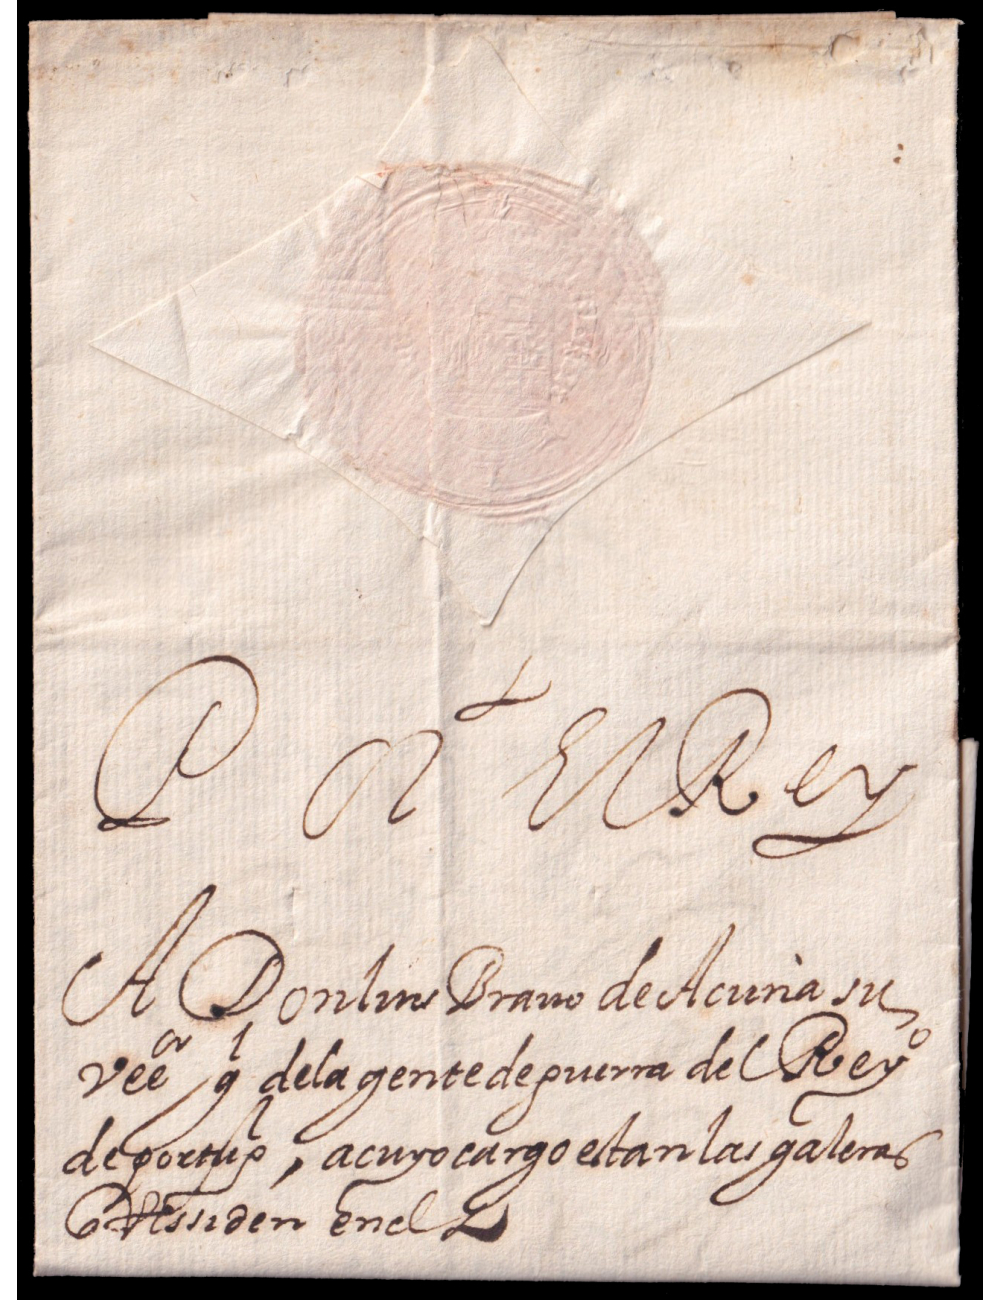 P N El Rey
A Don luis Brauo de Acuña su
veeor gl de la gente de guerra del Reyo
de portugl, a cuyo cargo estan las galeras
q Ressiden en el